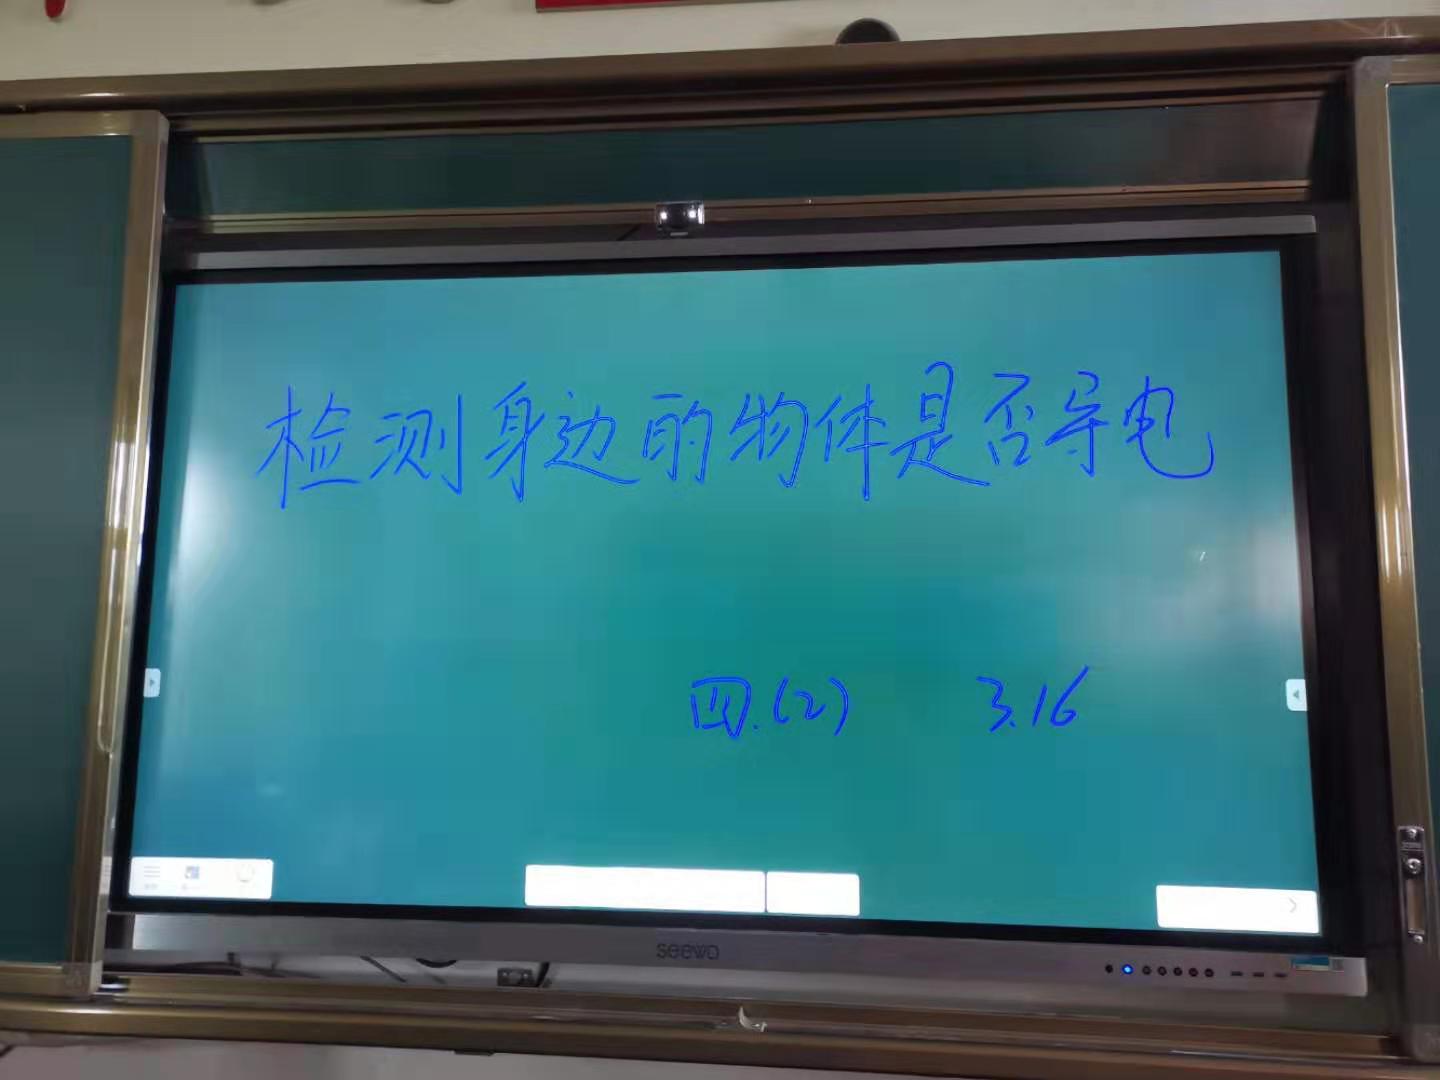 检测身边的物体是否导电
四.(2) 3.16
seewo